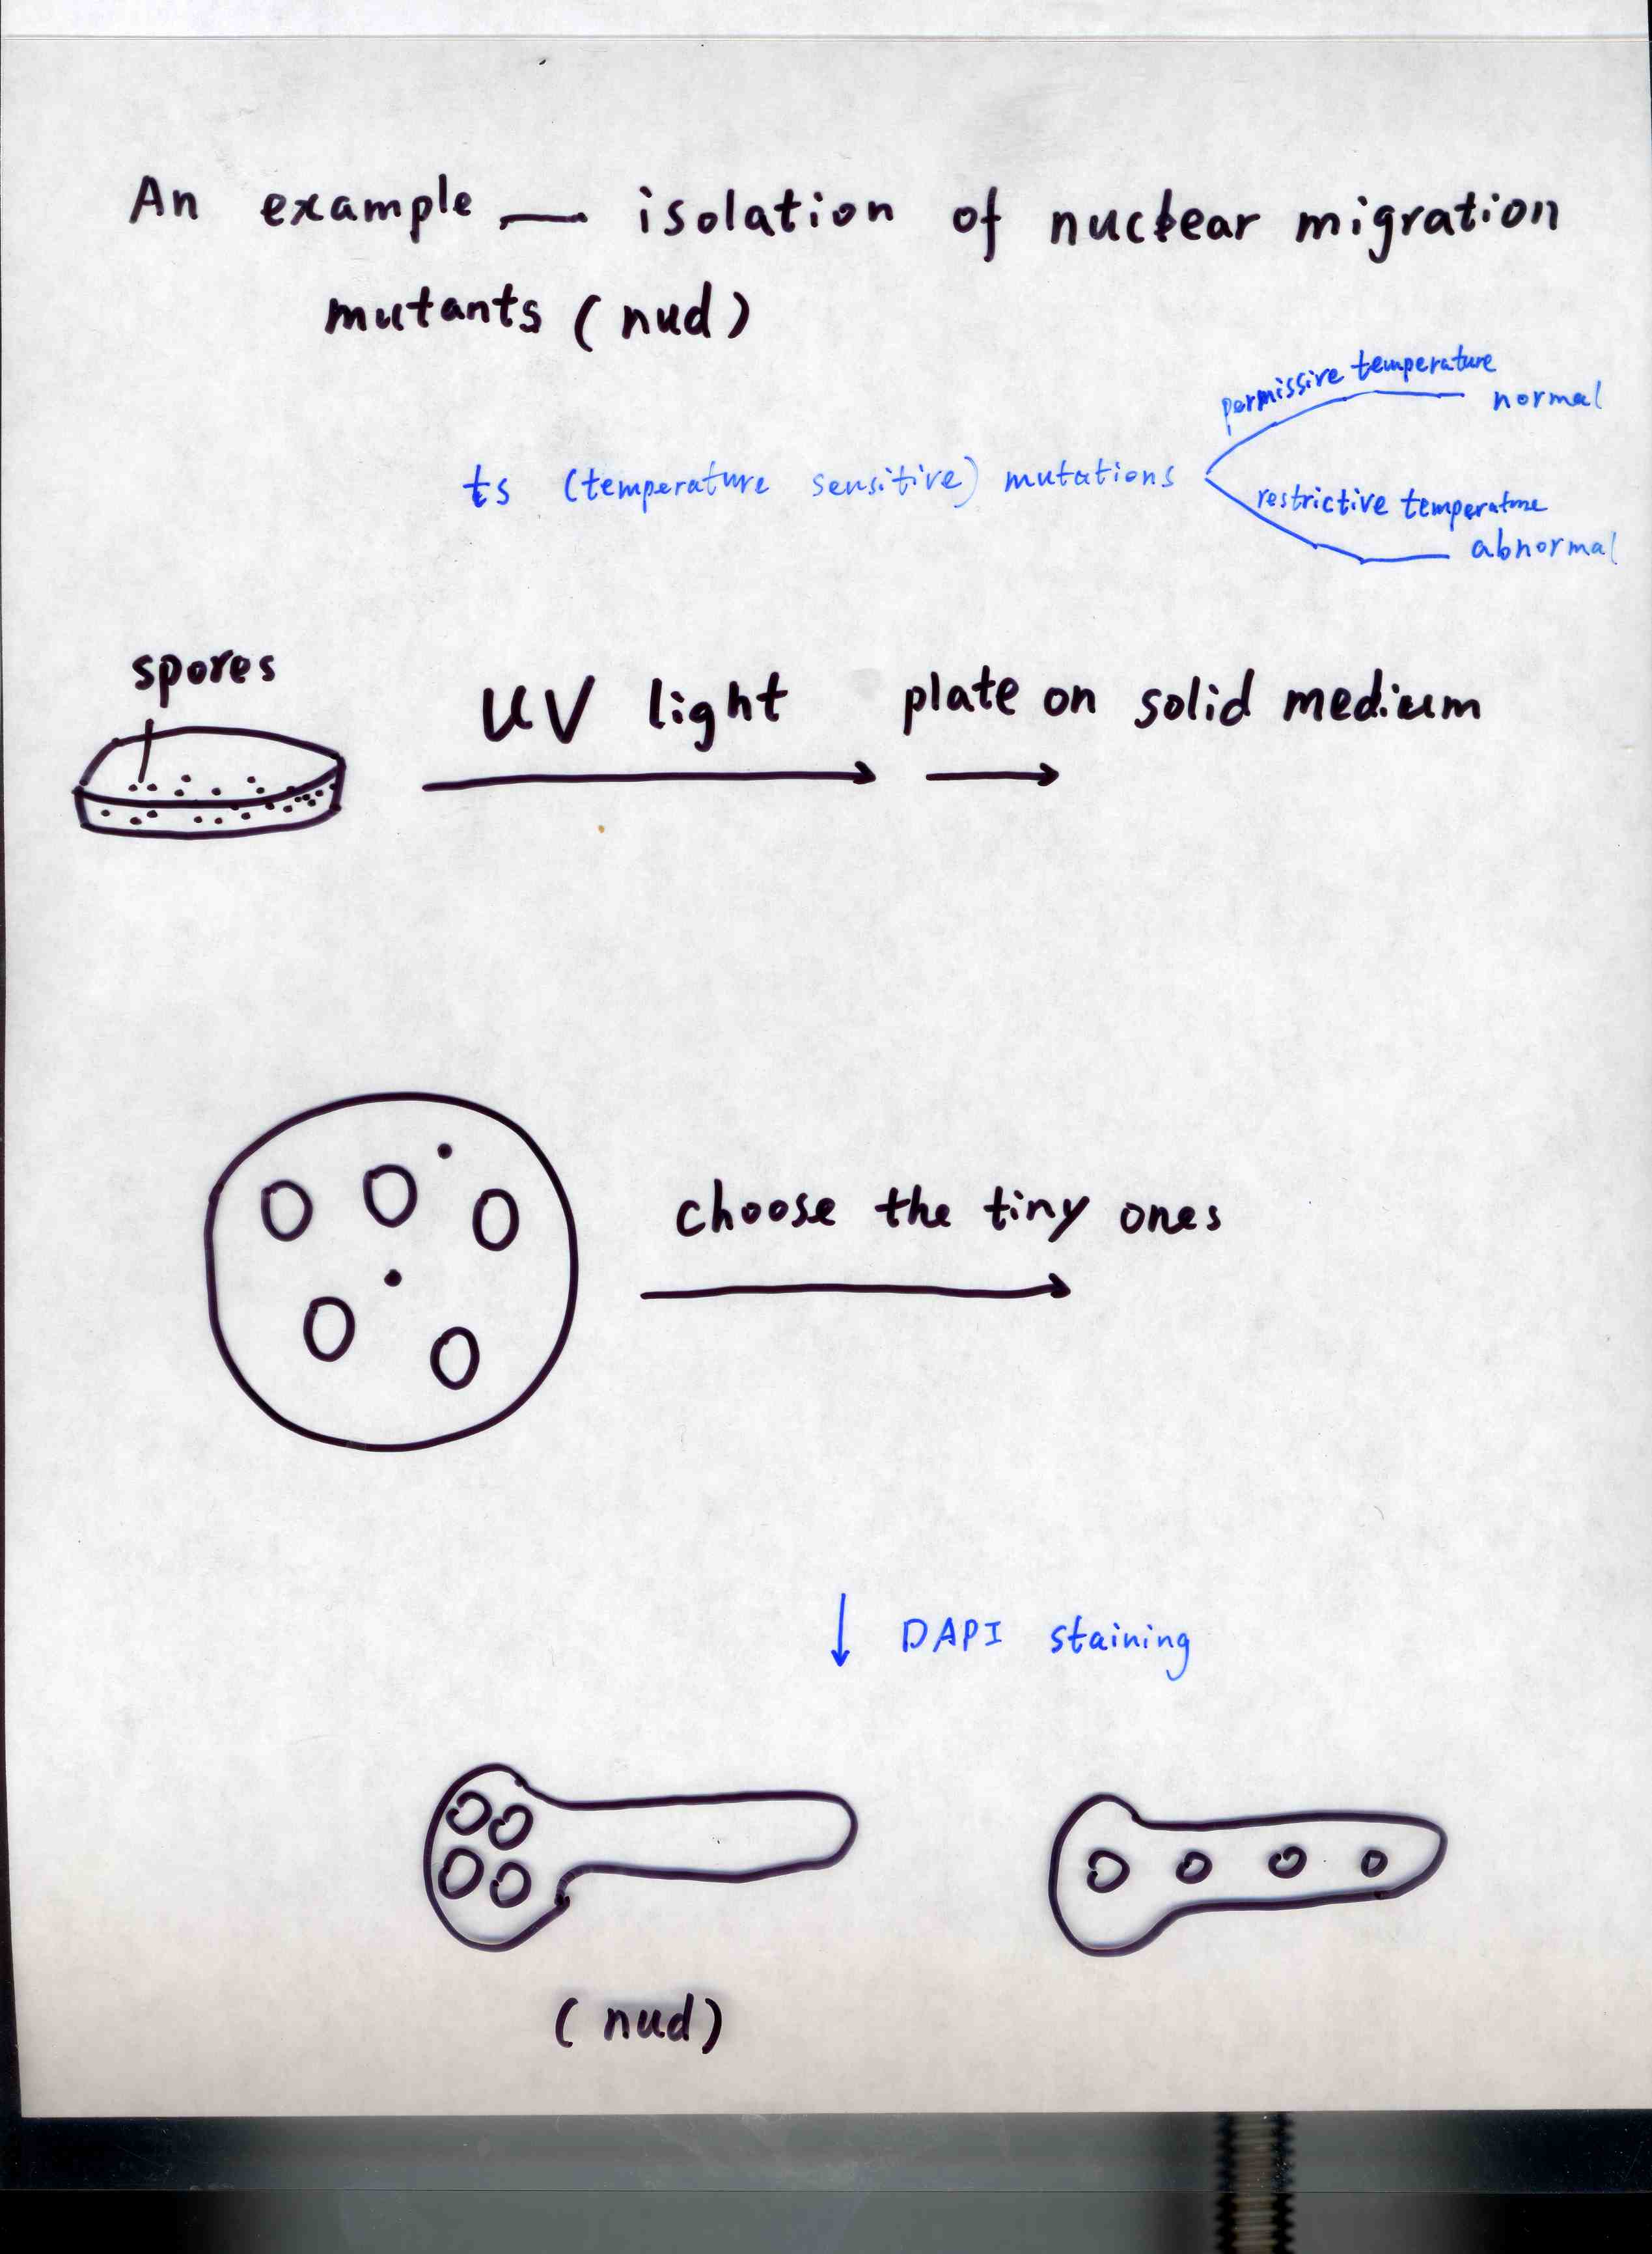 An example — isolation of nuclear migration
mutants (nud)
permissive temperature
normal
ts (temperature sensitive) mutations
restrictive temperature
abnormal
spores
UV light
plate on solid medium
choose the tiny ones
DAPI staining
(nud)